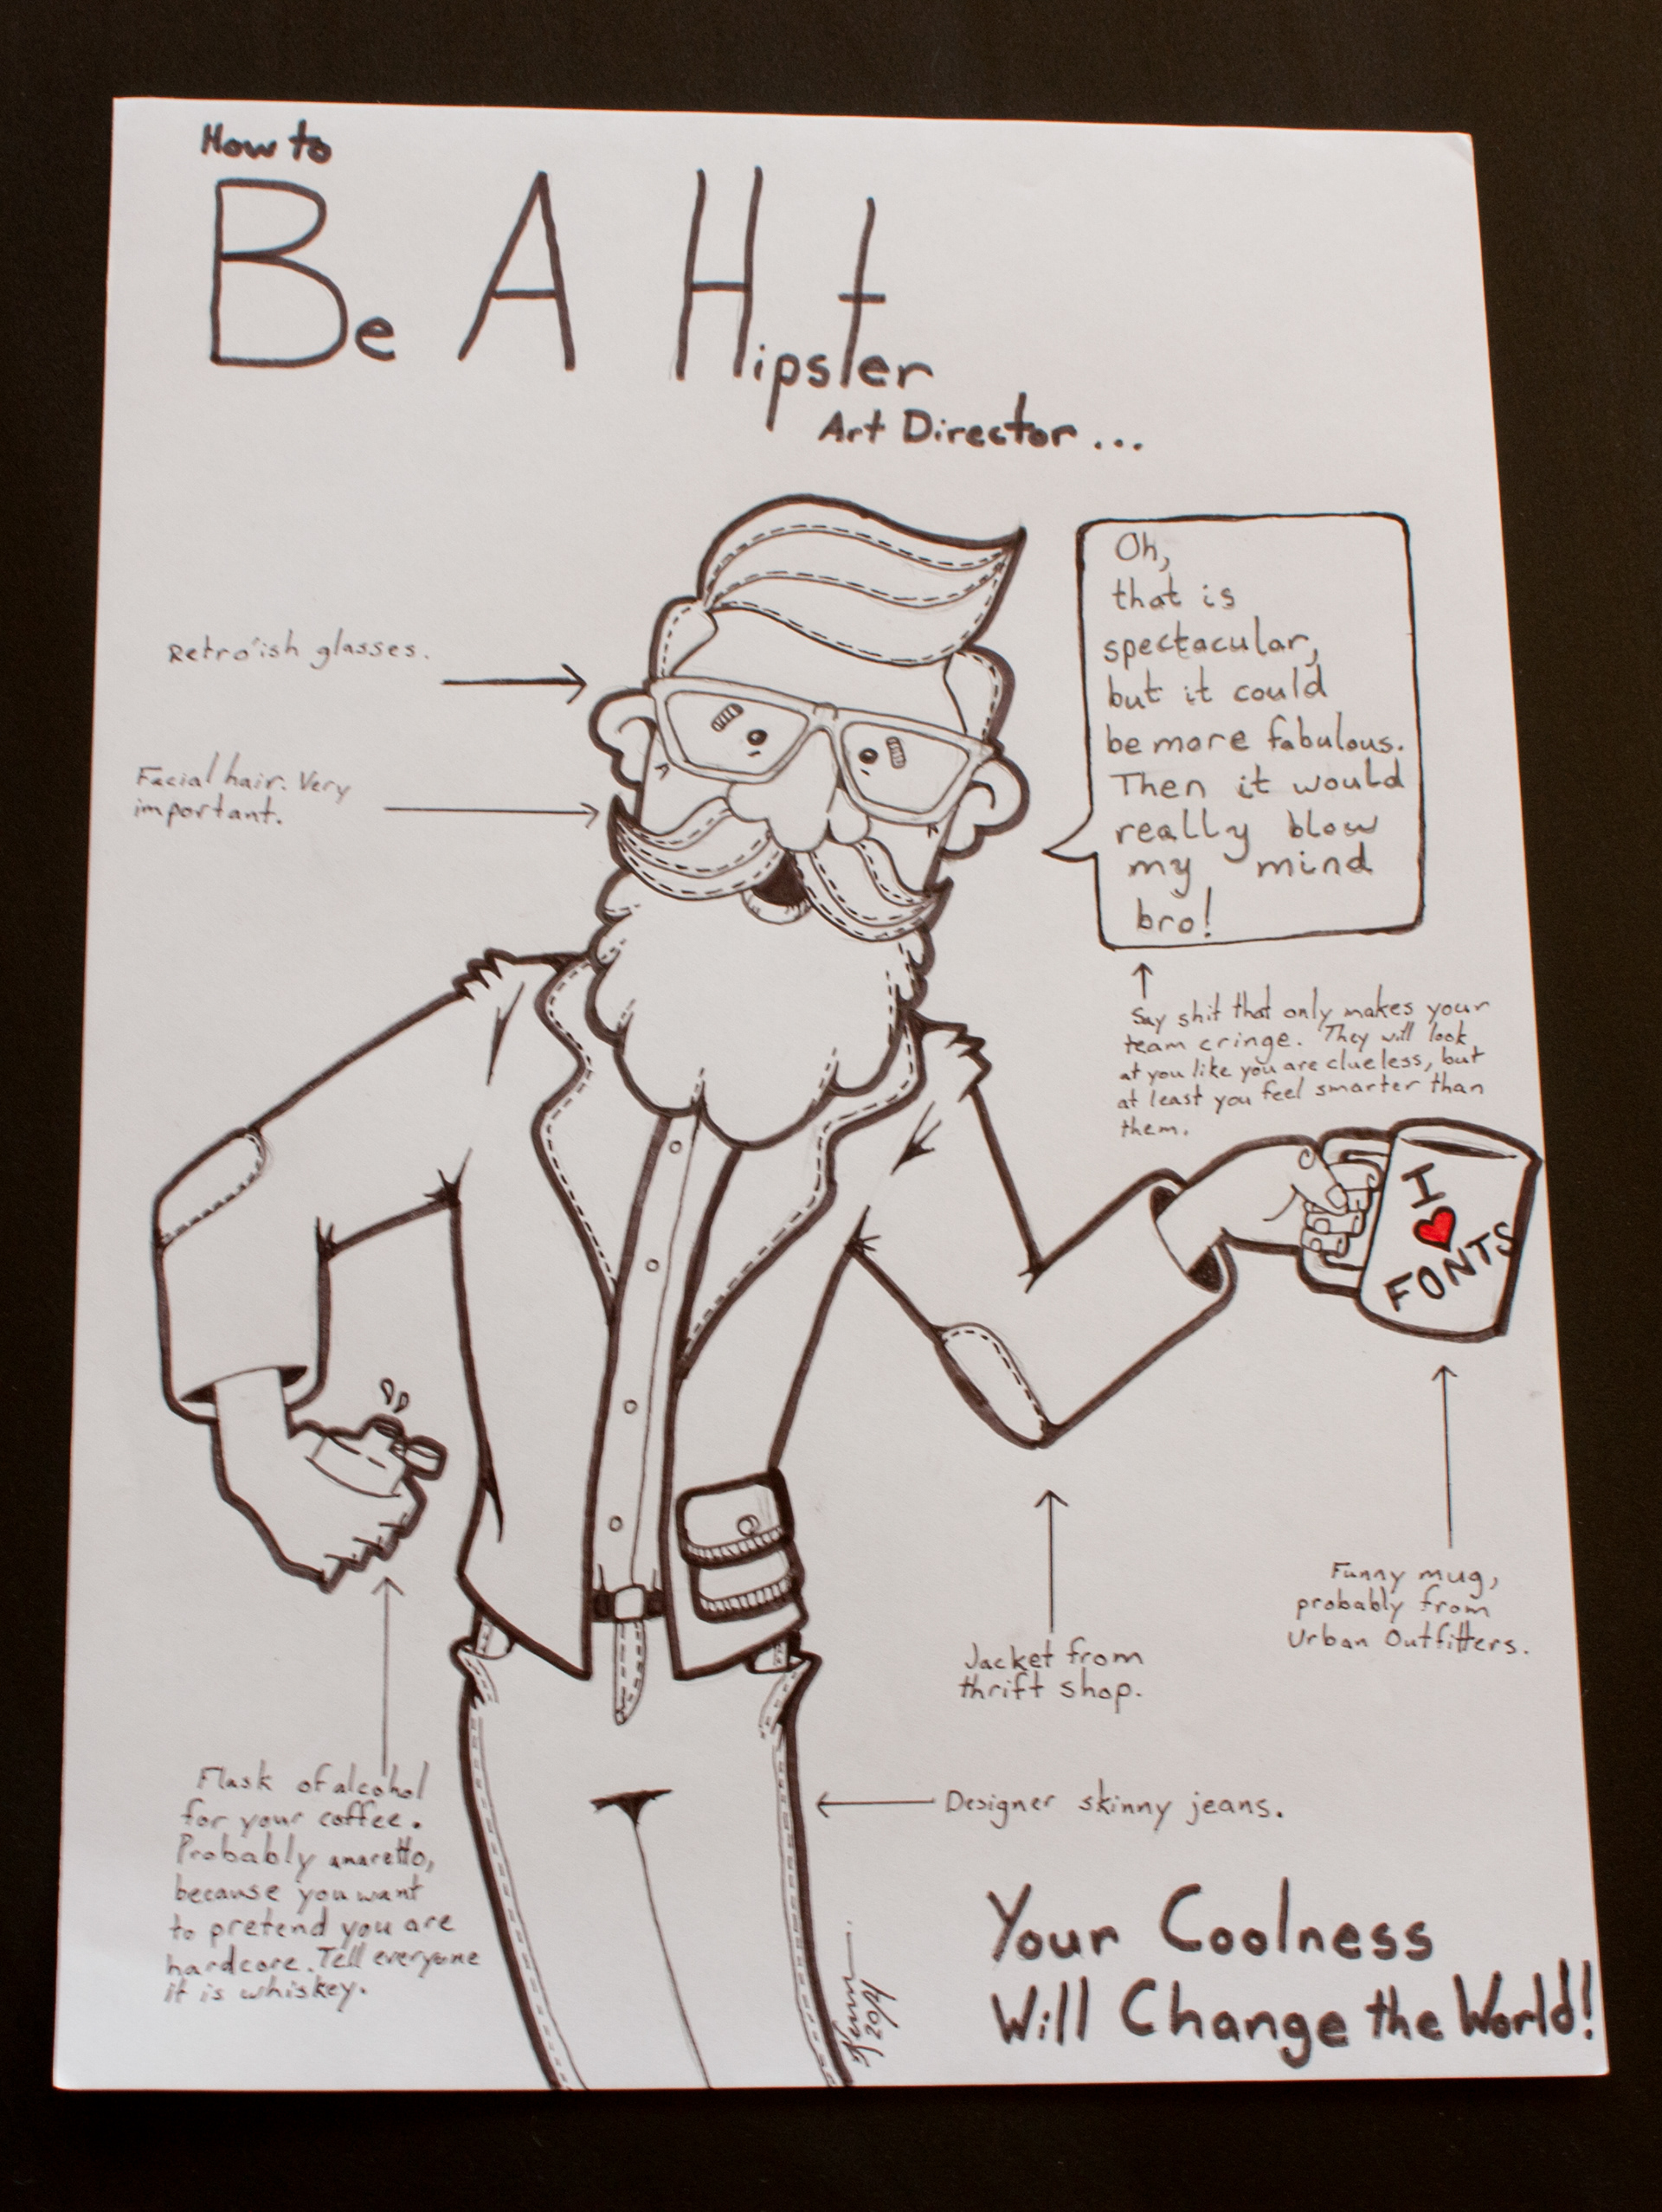 How to
Be A Hipster
Art Director...
Oh,
that is
spectacular,
but it could
be more fabulous.
Then it would
really blow
my mind
bro!
Retro'ish glasses.
Facial hair. Very
important.
Say shit that only makes your
team cringe. They will look
at you like you are clueless, but
at least you feel smarter than
them.
I
FONTS
Funny mug,
probably from
Urban Outfitters.
Jacket from
thrift shop.
Flask of alcohol
for your coffee.
Probably amaretto,
because you want
to pretend you are
hardcore. Tell everyone
it is whiskey.
Designer skinny jeans.
Your Coolness
Will Change the World!